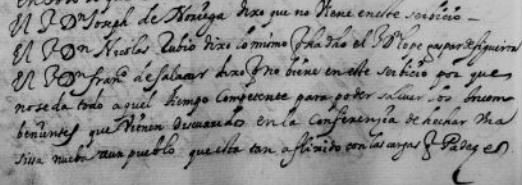 El S.r D.n Joseph de Noriega dixo que no viene en este serbicio
El S.r Dn Nicolas Rubio dixo lo mismo q ha dho el S.r D.n Lope gaspar de figueroa
El S.r D.n fran.co de Salazar dixo q no biene en este serbicio por que
no se da todo aquel tiempo Competente para poder saluar los Incom
benientes que Vienen discurridos en la Conferensia de hechar Vna
sissa nueba a un pueblo que esta tan aflixido con las cargas q Padeze